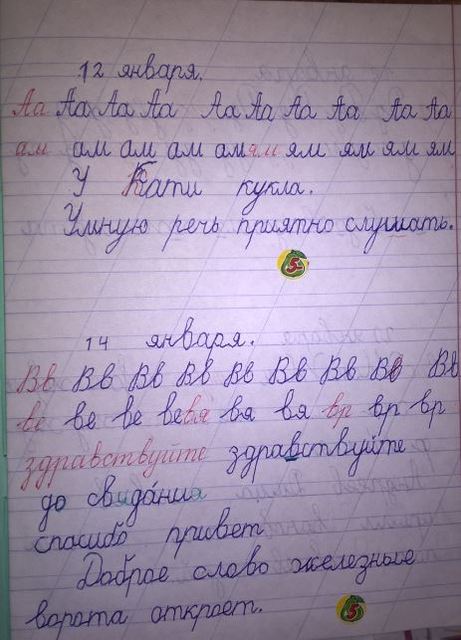 12 января.
Аа Аа Аа Аа Аа Аа Аа Аа Аа Аа
ам ам ам ам ам ям ям ям ям ям
У Кати кукла.
Умную речь приятно слушать.
5
14 января.
Вв Вв Вв Вв Вв Вв Вв Вв Вв
ве ве ве ве вя вя вя вр вр вр
здравствуйте здравствуйте
до свидáния
спасибо привет
Доброе слово железные
ворота откроет.
5